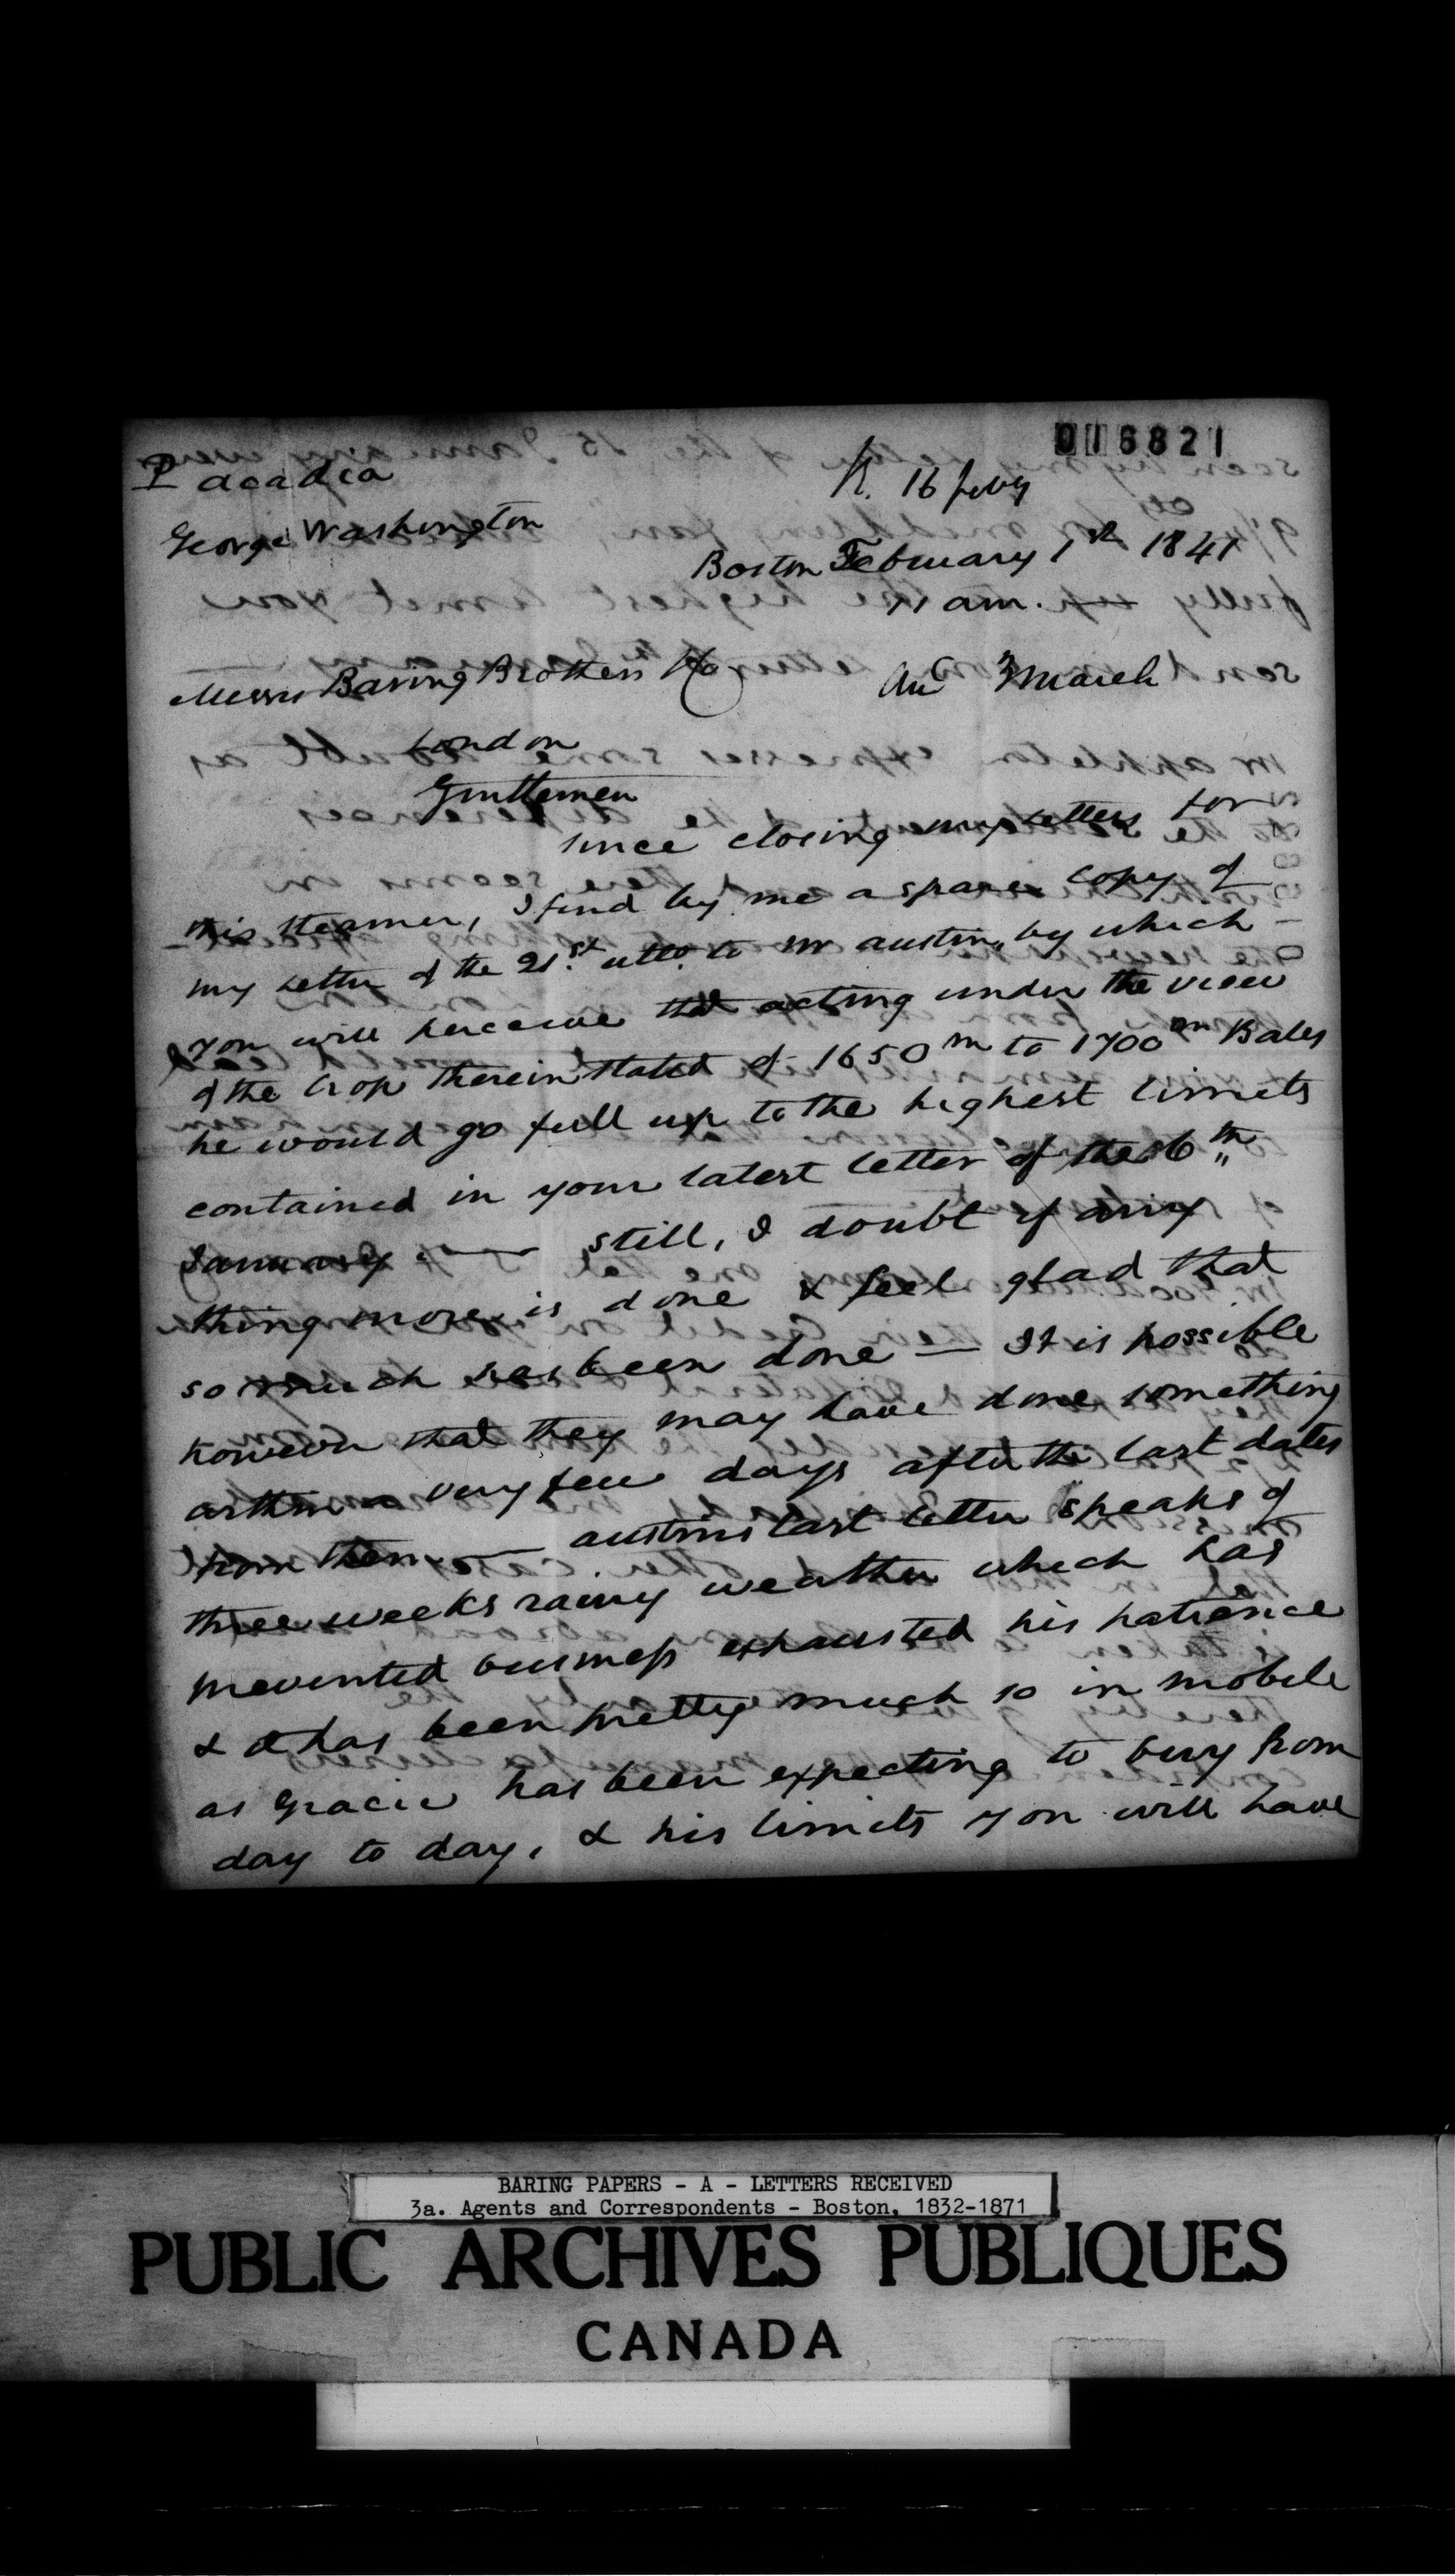 016821
P acadia
R. 16 feby
George Washington
Boston February 1st 1841
11 am.
Messrs Baring Brothers & Co
And 3 March
London
Gentlemen
since closing my letters for
this steamer, I find by me a spare copy of
my letter of the 21st ulto. to Mr austin, by which
you will perceive that acting under the view
of the crop therein stated of 1650m to 1700m Bales
he would go full up to the highest limits
contained in your latest letter of the 6th
January. — still, I doubt if any
thing more is done & feel glad that
so much has been done — It is possible
however that they may have done something
within a very few days after the last dates
from them. — austins last letter speaks of
three weeks rainy weather which has
prevented business exhausted his patience
& it has been pretty much so in mobile
as Gracie has been expecting to buy from
day to day, & his limits you will have
BARING PAPERS - A - LETTERS RECEIVED
3a. Agents and Correspondents - Boston, 1832-1871
PUBLIC ARCHIVES PUBLIQUES
CANADA